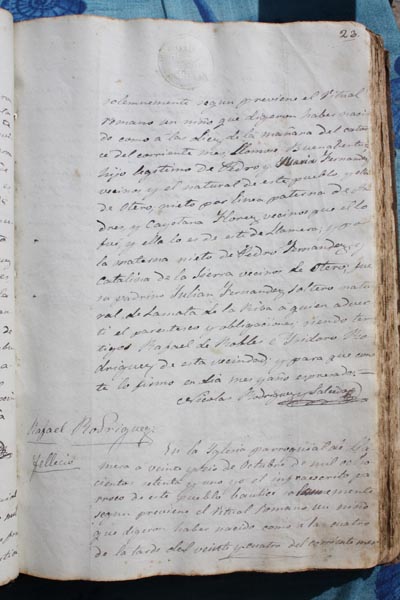 23
solemnemente segun previene el Ritual
romano un niño que dijeron haber naci
do como a las diez de la mañana del cator
ce del corriente mes, llamose Buenabentura
hijo legitimo de Pedro y Maria Fernandez
vecinos y el natural de este pueblo y ella
de Otero, nieto por linea paterna de
y Cayetana Florez vecinos que el lo
fué y ella lo es de este de Llamera, y por
la materna nieto de Pedro Fernandez, y
Catalina de la Sierra vecinos de Otero; fue
su padrino Julian Fernandez soltero natu
ral de Lamata de la Riba a quien adver
ti el parentesco y obligaciones, siendo tes
tigos Rafael de Robles e Ysidoro Ro
driguez de esta vecindad: y para que cons
te lo firmo en dia mes y año espresado.=
Nicolas Rodriguez y Salcedo
Rafael Rodriguez.
Fallecio
En la Yglesia parroquial de Lla
mera a veinte y seis de Octubre de mil ocho
cientos setenta y uno yo el infraescrito pa
rroco de este pueblo bautice solemnemente
segun previene el Ritual Romano un niño
que dijeron haber nacido como a las cuatro
de la tarde del veinte y cuatro del corriente mes